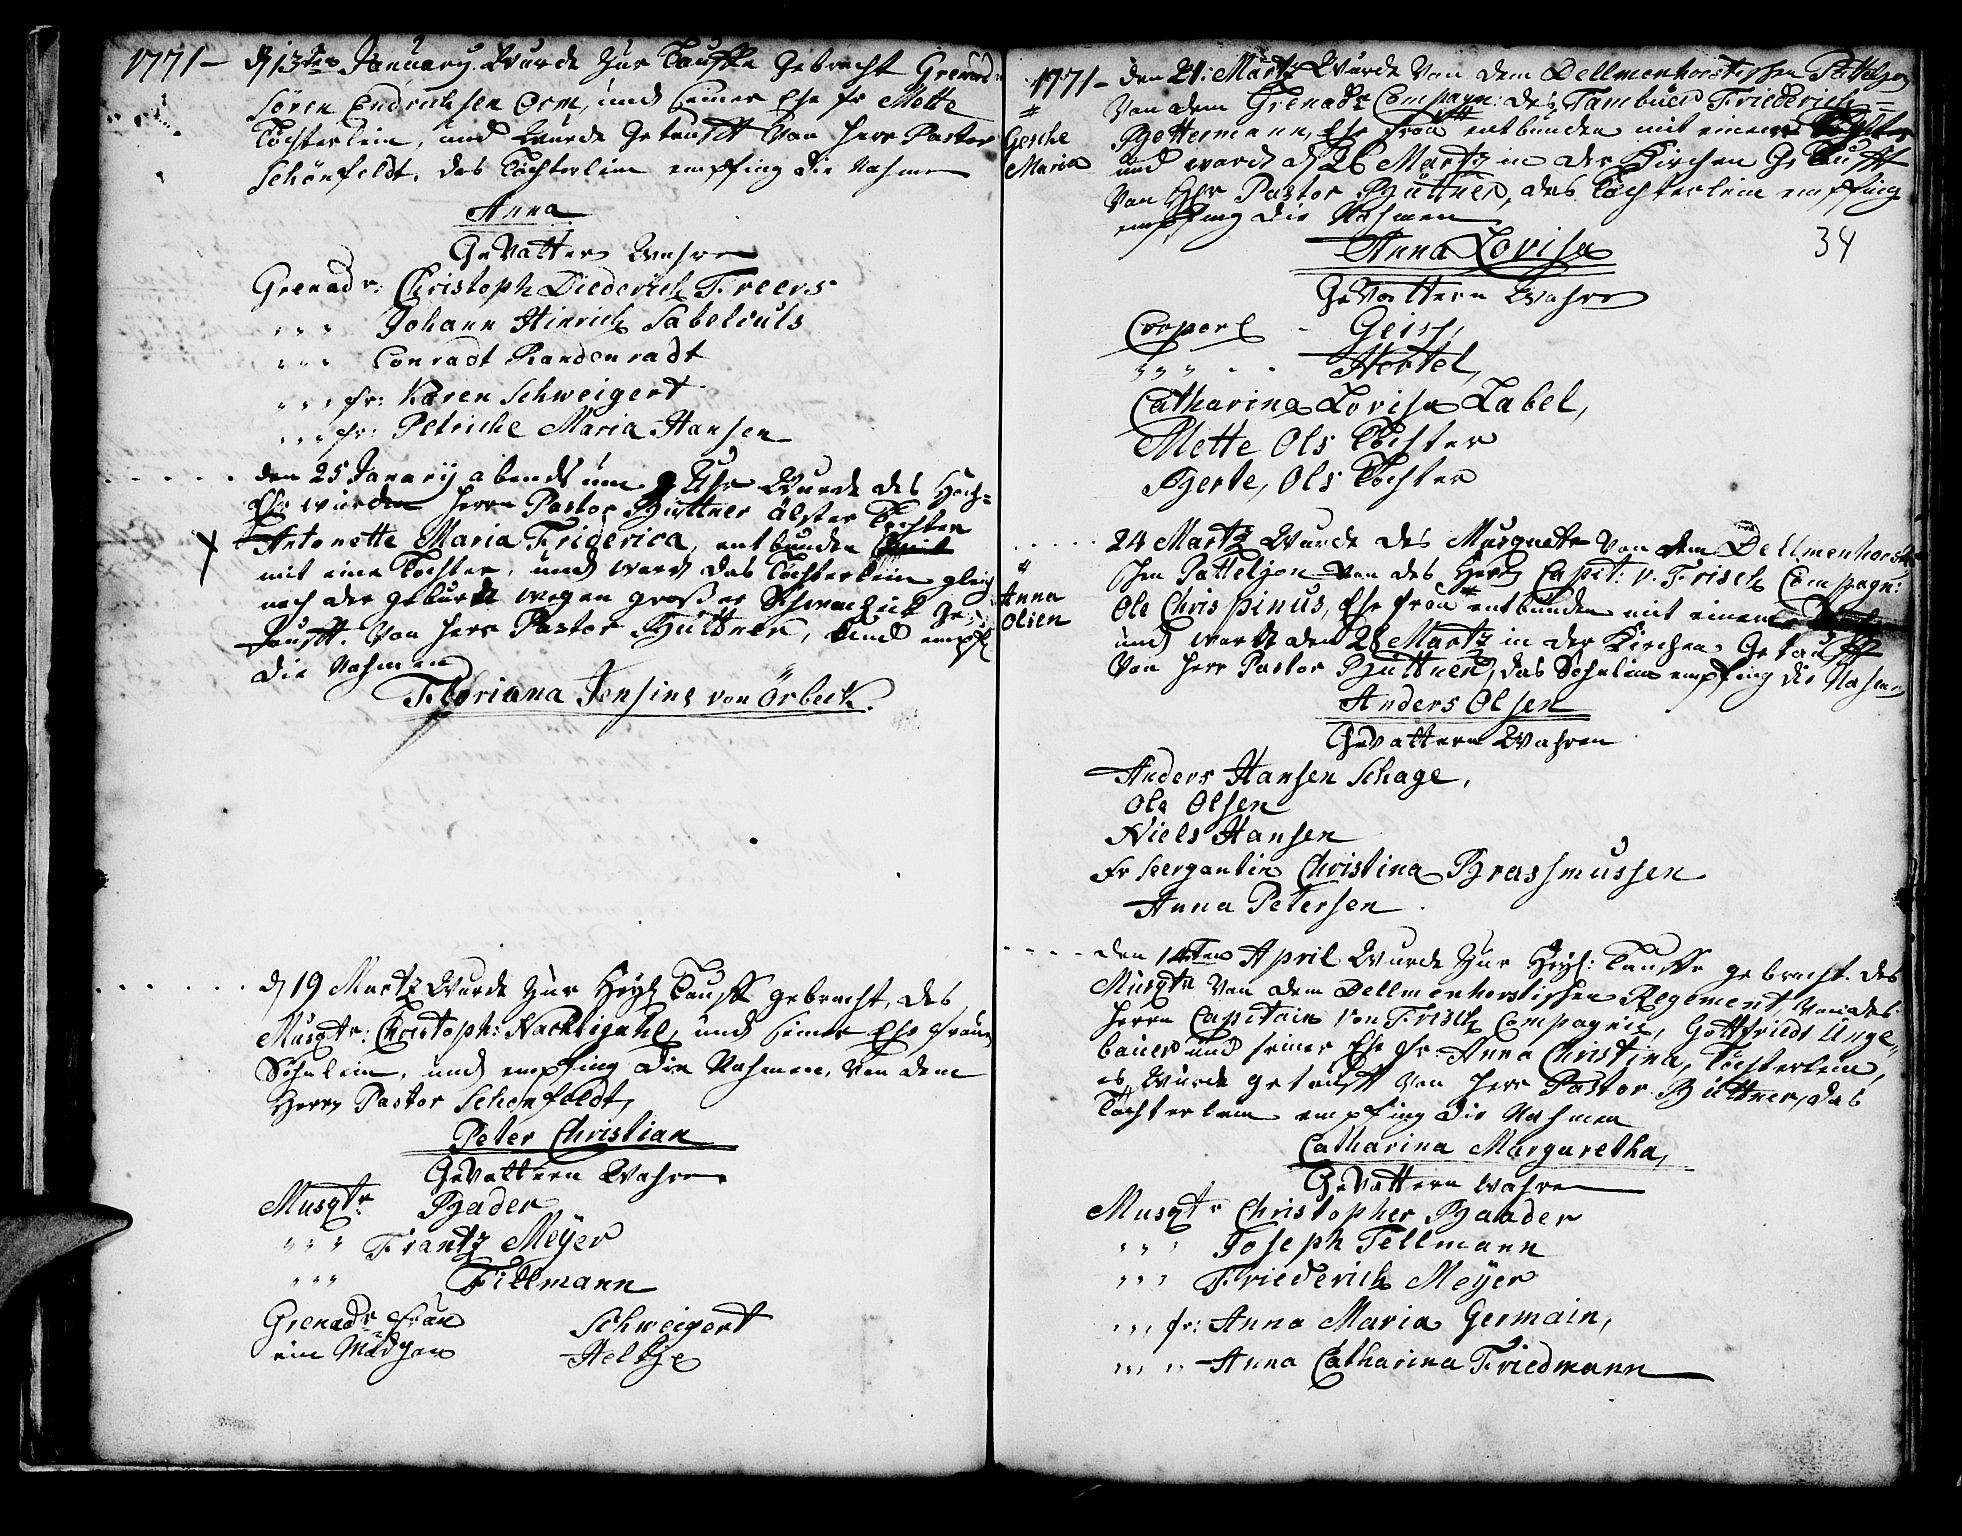 1771 – d 13ten January Wurde Zur Tauffe Gebracht Grenad:
Sören Endrichsen Orm, und seiner Ehe fr Mette
Töchterlein, und Wurde Getaufft Von Herr Pastor
Schönfeldt, das Töchterlein empfing die Nahmen
Anna
GeVattern Wahren
Grenadr: Christoph Diederich Freers
" " " Johann Hinrich Sabelculs
" " " Conradt Randenradt
" " " fr: Karen Schweigert
" " " fr: Petriche Maria Hansen
den 25 Janary abends um 9 Uhr Wurde des Hoch=
Ehrwürden Herrn Pastor Büttner älster Tochter
Antonette Maria Friderica, entbunden
mit eine Tochter, und ward das Töchterlein gleich
nach der geburdt wegen großer Schwacheit Ge=
taufft. Von Herr Pastor Büttner, und empf
die Nahmen
Floriana Jensine von Örbeck.
d 19 Martz Wurde Zur Heyl Tauff gebracht, des
Musqtr: Christoph: Nachtigahl, und seiner Ehe frauen
Söhnlein, und empfing die Nahmen, Von dem
Herrn Pastor Schönfeldt,
Peter Christian
GeVattern Wahren
Musqtr Bader
" " " Frantz Meÿer
" " " Fillmann
Grenadr frau Schweigert
ein Mädgen Heltje
1771 – den 21: Martz Wurde Von dem Dellmenhorstischen Battaljon
Von dem Grenadr Compagn: des Tambuer Friederich
Gesche
Maria
Bottermann, Ehe frau entbunden mit einer Tochter
und ward d 26 Martz in der Kirchen Getaufft
Von Herr Pastor Büttner, das Töchterlein empfing
empfing die Nahmen
34
Anna Lovisa
GeVattern Wahren
Corporl - Geisch,
" " " - - Hertel,
Catharina Lovisa Label,
Mette Ols Tochter
Berte, Ols Tochter
24 Martz Wurde des Musquetr Von dem Dellmenhorsti
schen Battaljon Von des Herrn Capit: v. Frisch Compagn:
Anna
Olsen
Ole Chrispinus, Ehe frau entbunden mit einem
und ward den 28 Martz in der Kirchen Getaufft
Von Herr Pastor Büttner, das Söhnlein empfing die Nahmen
Anders Olsen
GeVattern Wahren
Anders Hansen Schage,
Ole Olsen
Niels Hansen
Fr Seergantin Christina Brassmussen
Anna Petersen
den 14ten April Wurde Zur Heyl: Tauffe gebracht des
Musqtr Von dem Dellmenhorstischen Regement Von des
Herrn Capitain von Frisch Compagnie, Gottfriedt Unge,,
bauer und seiner Ehe fr. Anna Christina, Töchterlein,
es Wurde getaufft Von Herr Pastor Büttner, das
Töchterlein empfing die Nahmen
Catharina Margaretha,
GeVattern Wahren
Musqtr Christopher Baader
" " " Joseph Tellmann
" " " Friederich Meÿer
" " " fr: Anna Maria Germain,
" " " " Anna Catharina Friedmann